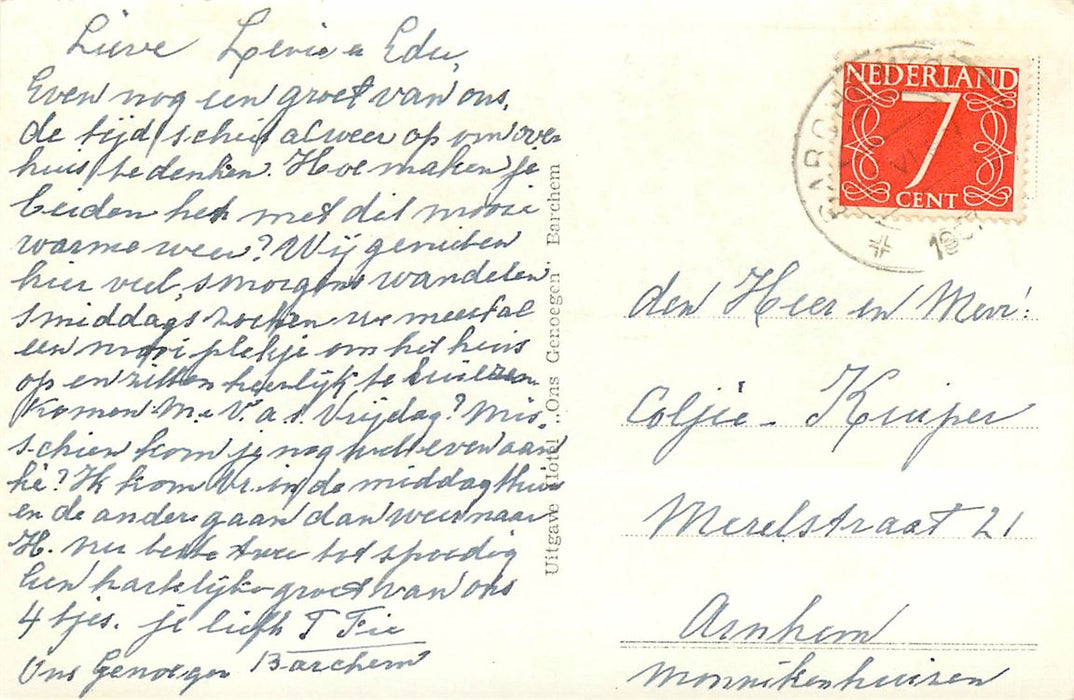 Lieve Levie en Edu,
Even nog een groet van ons.
de tijd schiet alweer op om over
huis te denken. Hoe maken je
beiden het met dit mooie
warme weer? Wij genieten
hier veel, smorgens wandelen
smiddags zoeken we meestal
een mooi plekje om het huis
op en zitten heerlijk te
Komen M. e. V. a.s. Vrijdag? Mis-
schien kom je nog wel even aan
hè? Ik kom Vr. in de middag thuis
en de andere gaan dan weer naar
H. nu beste twee tot spoedig
Een hartelijke groet van ons
4 tjes. je liefh T Fie
Ons Genoegen Barchem
Uitgave Hotel „Ons Genoegen" Barchem
NEDERLAND
7
CENT
den Heer en Mevr:
Coljie - Kuiper
Merelstraat 21
Arnhem
Monnikenhuizen